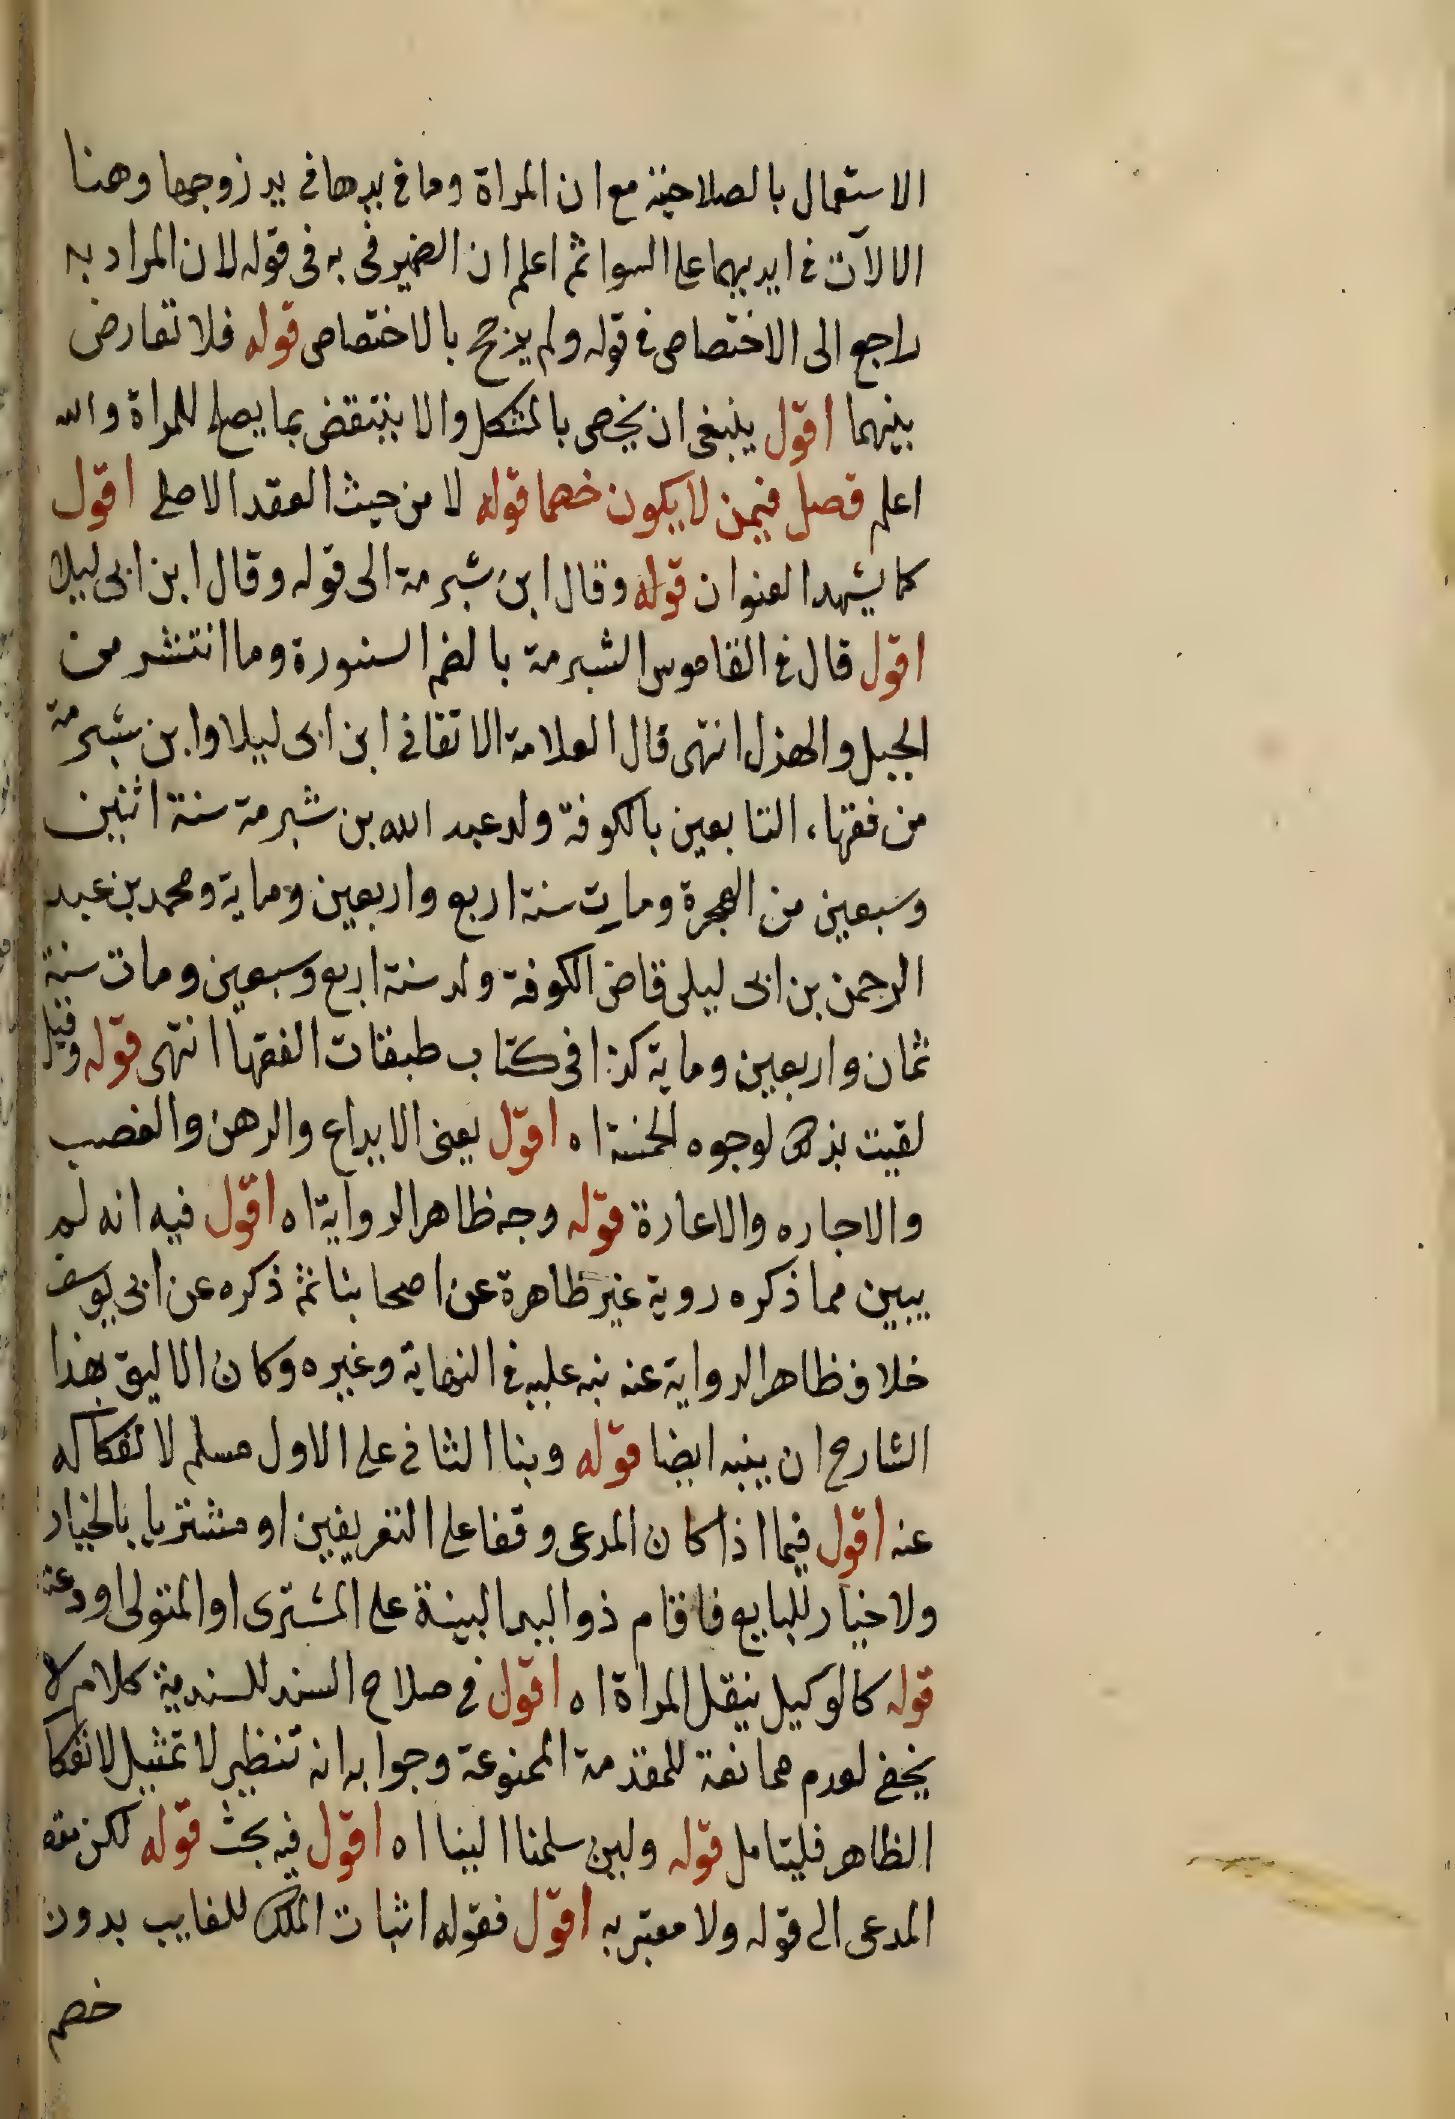 الاستعمال بالصلاحية مع ان المراة وما فى يدها فى يد زوجها وهنا
الالات فى ايديهما على السوا ثم اعلم ان الضمير فى به فى قوله لان المراد به
راجع الى الاختصاص فى قوله ولم يرجح بالاختصاص قوله فلا تعارض
بينهما اقول ينبغى ان يخص بالمشكل والا ينتقض بما يصلح للمراة والله
اعلم فصل فيمن لا يكون خصما قوله لا من حيث العقد الاصلى اقول
كما يشهد العنوان قوله وقال ابن شبرمة الى قوله وقال ابن ابى ليلا
اقول قال فى القاموس الشبرمة بالضم السنورة وما انتشر من
الحبل والغزل انتهى قال العلامة الاتقانى ابن ابى ليلا وابن شبرمة
من فقهاء التابعين بالكوفة ولد عبد الله بن شبرمة سنة اثنين
وسبعين من الهجرة ومات سنة اربع واربعين وماية ومحمد بن عبد
الرحمن بن ابى ليلى قاض الكوفة ولد سنة اربع وسبعين ومات سنة
ثمان واربعين وماية كذا فى كتاب طبقات الفقها انتهى قوله وقيل
لقيت بذلك لوجوه الخمسة اه اقول يعنى الايداع والرهن والغصب
والاجاره والاعارة قوله وجه ظاهر الرواية اه اقول فيه انه لم
يبين مما ذكره روية غير ظاهرة عن اصحابنا ثم ذكره عن ابى يوسف
خلاف ظاهر الرواية عنه نبه عليه فى النهاية وغيره وكان الاليق بهذا
الشارح ان ينبه ايضا قوله وبنا الثانى على الاول مسلم لانفكاكه
عنه اقول فيما اذا كان المدعى وقفا على التعريفين او مشتريا بالخيار
ولا خيار للبايع فاقام ذو اليد البينة على المشترى او المتولى اودعه
قوله كالوكيل بنقل المراة اه اقول فى صلاح السند للسندية كلام لا
يخفى لعدم ممانعة للمقدمة الممنوعة وجوابه انه تنظير لا تمثيل لانفكا
الظاهر فليتامل قوله ولين سلمنا البنا اه اقول فيه بحث قوله لكن مقص
المدعى الى قوله ولا معتبر به اقول فقوله اثبات الملك للغايب بدون
خصم